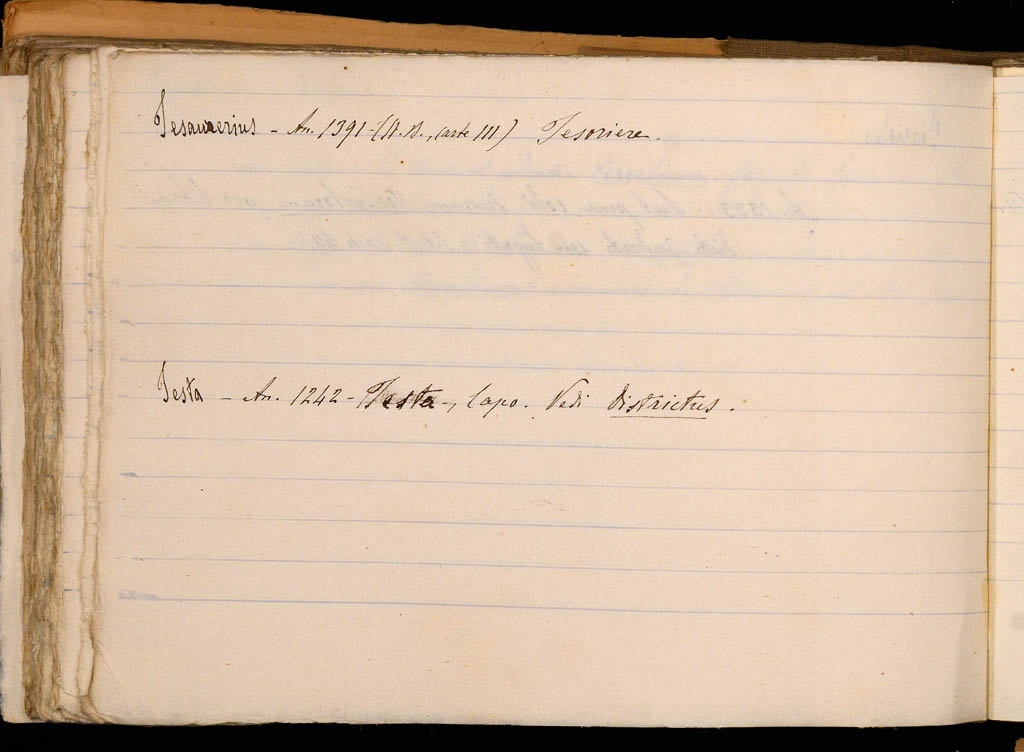 Tesaurerius - An. 1391 - (A. B., carte 111) Tesoriere.
Testa - An. 1242 - Testa -, Capo. Vedi Districtus.